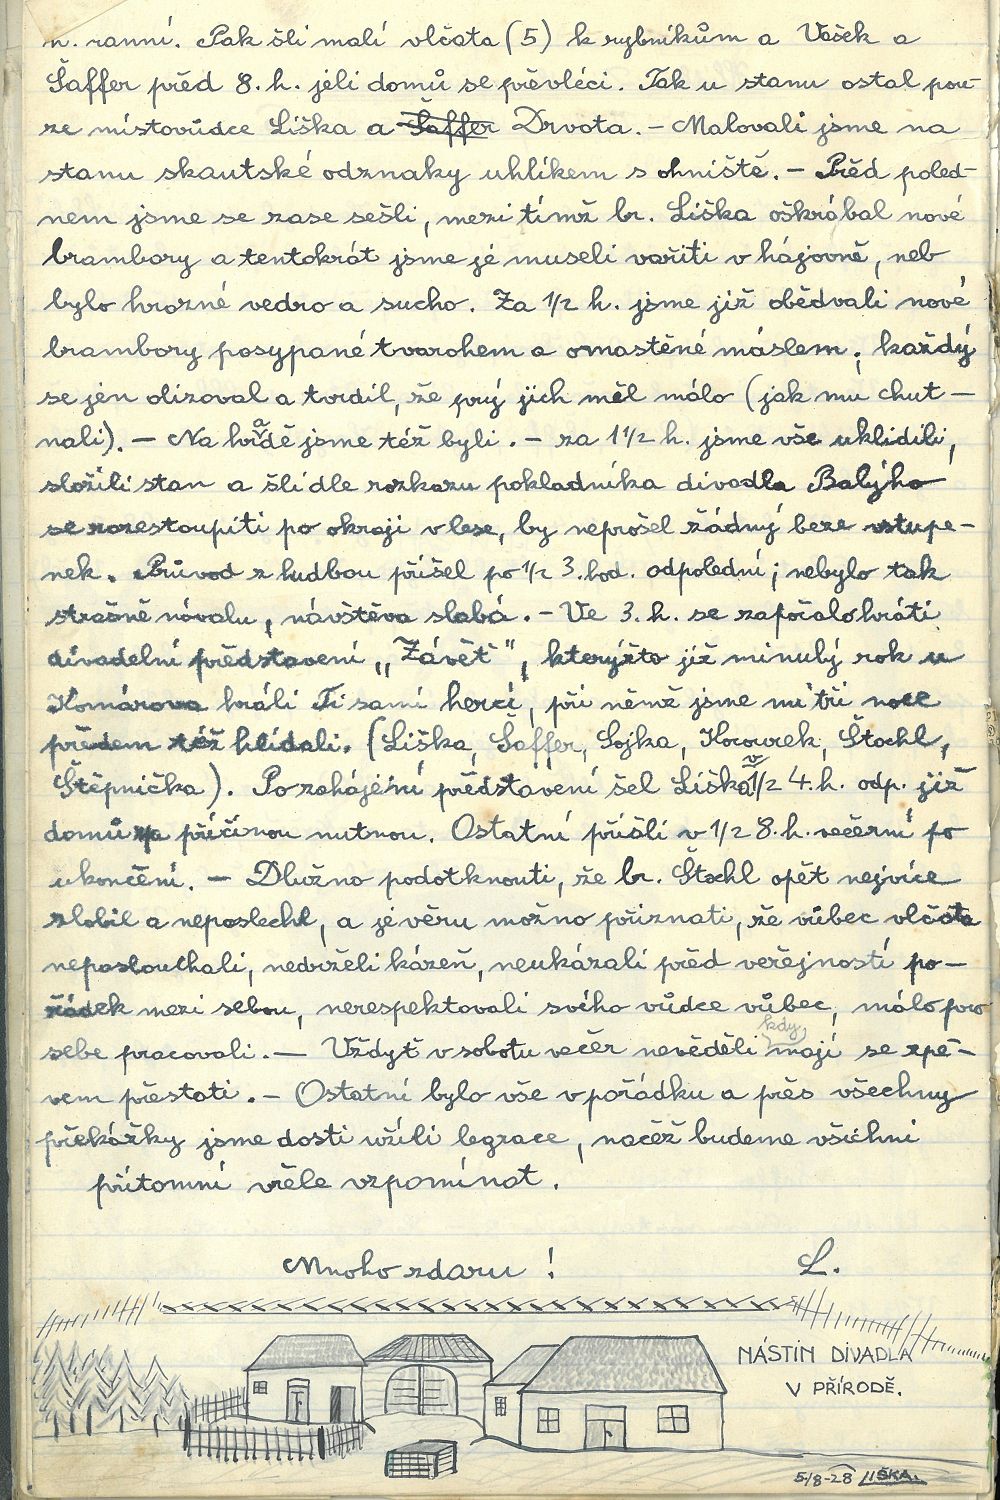 h. ranní. Pak šli malí vlčata (5) k rybníkům a Vašek a
Šaffer před 8. h. jeli domů se převléci. Tak u stanu ostal pou-
ze místovůdce Liška a Šaffer Drvota. – Malovali jsme na
stanu skautské odznaky uhlíkem s ohniště. – Před poled-
nem jsme se zase sešli, mezi tímž br. Liška oškrábal nové
brambory a tentokrát jsme je museli vařiti v hájovně, neb
bylo hrozné vedro a sucho. Za 1/2 h. jsme již obědvali nové
brambory posypané tvarohem a omastěné máslem; každý
se jen olizoval a tvrdil, že prý jich měl málo (jak mu chut–
nali). – Na hradě jsme též byli. – za 1 1/2 h. jsme vše uklidili,
složili stan a šli dle rozkazu pokladníka divadla Balýho
se rozestoupiti po okraji v lese, by neprošel žádný beze vstupe–
nek. Průvod z hudbou přišel po 1/2 3. hod. odpolední; nebylo tak
strašně návalu, návštěva slabá. – Ve 3. h. se započalo hráti
divadelní představení „Závěť", kterýžto již minulý rok u
Komárova hráli Ti samí herci, při němž jsme mi tři noce
předem též hlídali. (Liška, Šaffer, Sojka, Kocourek, Štochl,
Štěpnička). Po zahájení představení šel Liška v 1/2 4. h. odp. již
domů příčinou nutnou. Ostatní přišli v 1/2 8. h. večerní po
ukončení. – Dlužno podotknouti, že br. Štochl opět nejvíce
zlobil a neposlechl, a je věru možno přiznati, že vůbec vlčata
neposlouchali, nedrželi kázeň, neukázali před veřejností po–
řádek mezi sebou, nerespektovali svého vůdce vůbec, málo pro
sebe pracovali. – Vždyť v sobotu večer nevěděli kdy mají se zpě–
vem přestati. – Ostatní bylo vše v pořádku a přes všechny
překážky jsme dosti užili legrace, načež budeme všichni
přítomní vřele vzpomínat.
Mnoho zdaru! L.
NÁSTIN DIVADLA
V PŘÍRODĚ.
5/8-28 LIŠKA.